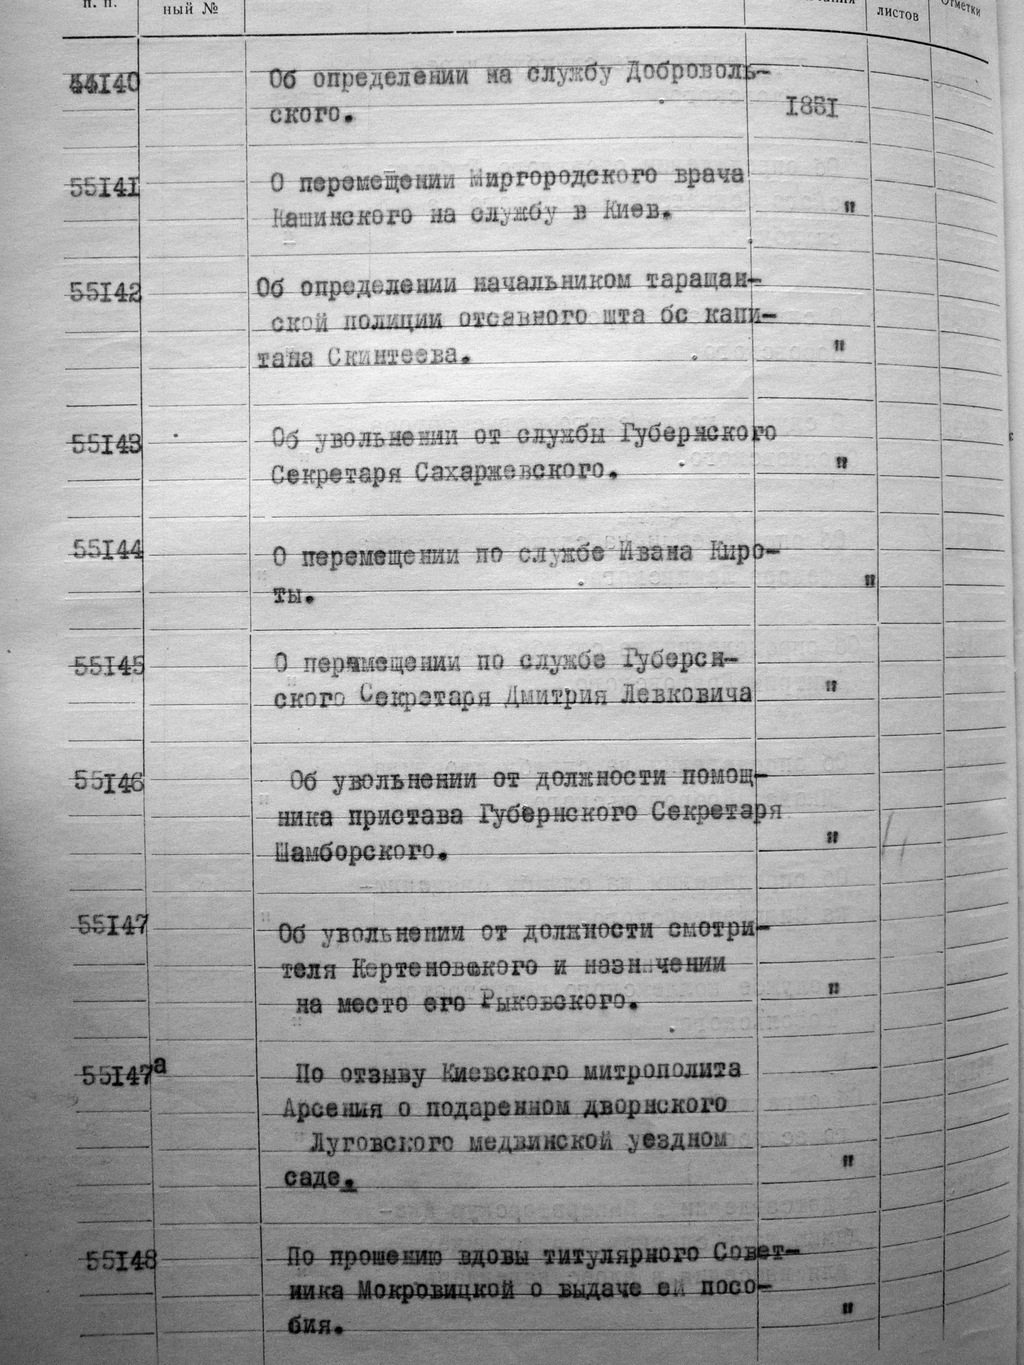 п. п.
ный №
листов
Отметки
44140 Об определении на службу Доброволь-
ского. 1831
55141 О перемещении Миргородского врача
Кашинского на службу в Киев. "
55142 Об определении начальником таращан-
ской полиции отсавного шта бс капи-
тана Скинтеева. "
55143 Об увольнении от службы Губернского
Секретаря Сахаржевского. "
55144 О перемещении по службе Ивана Киро-
ты. "
55145 О перемещении по службе Губерсн-
ского Секретаря Дмитрия Левковича "
55146 Об увольнении от должности помощ-
ника пристава Губернского Секретаря
Шамборского. "
55147 Об увольнении от должности смотри-
теля Кертеновского и назначении
на место его Рыковского. "
55147а По отзыву Киевского митрополита
Арсения о подаренном дворнского
Луговского медвинской уездном
саде. "
55148 По прошению вдовы титулярного Совет-
ника Мокровицкой о выдаче ей посо-
бия. "